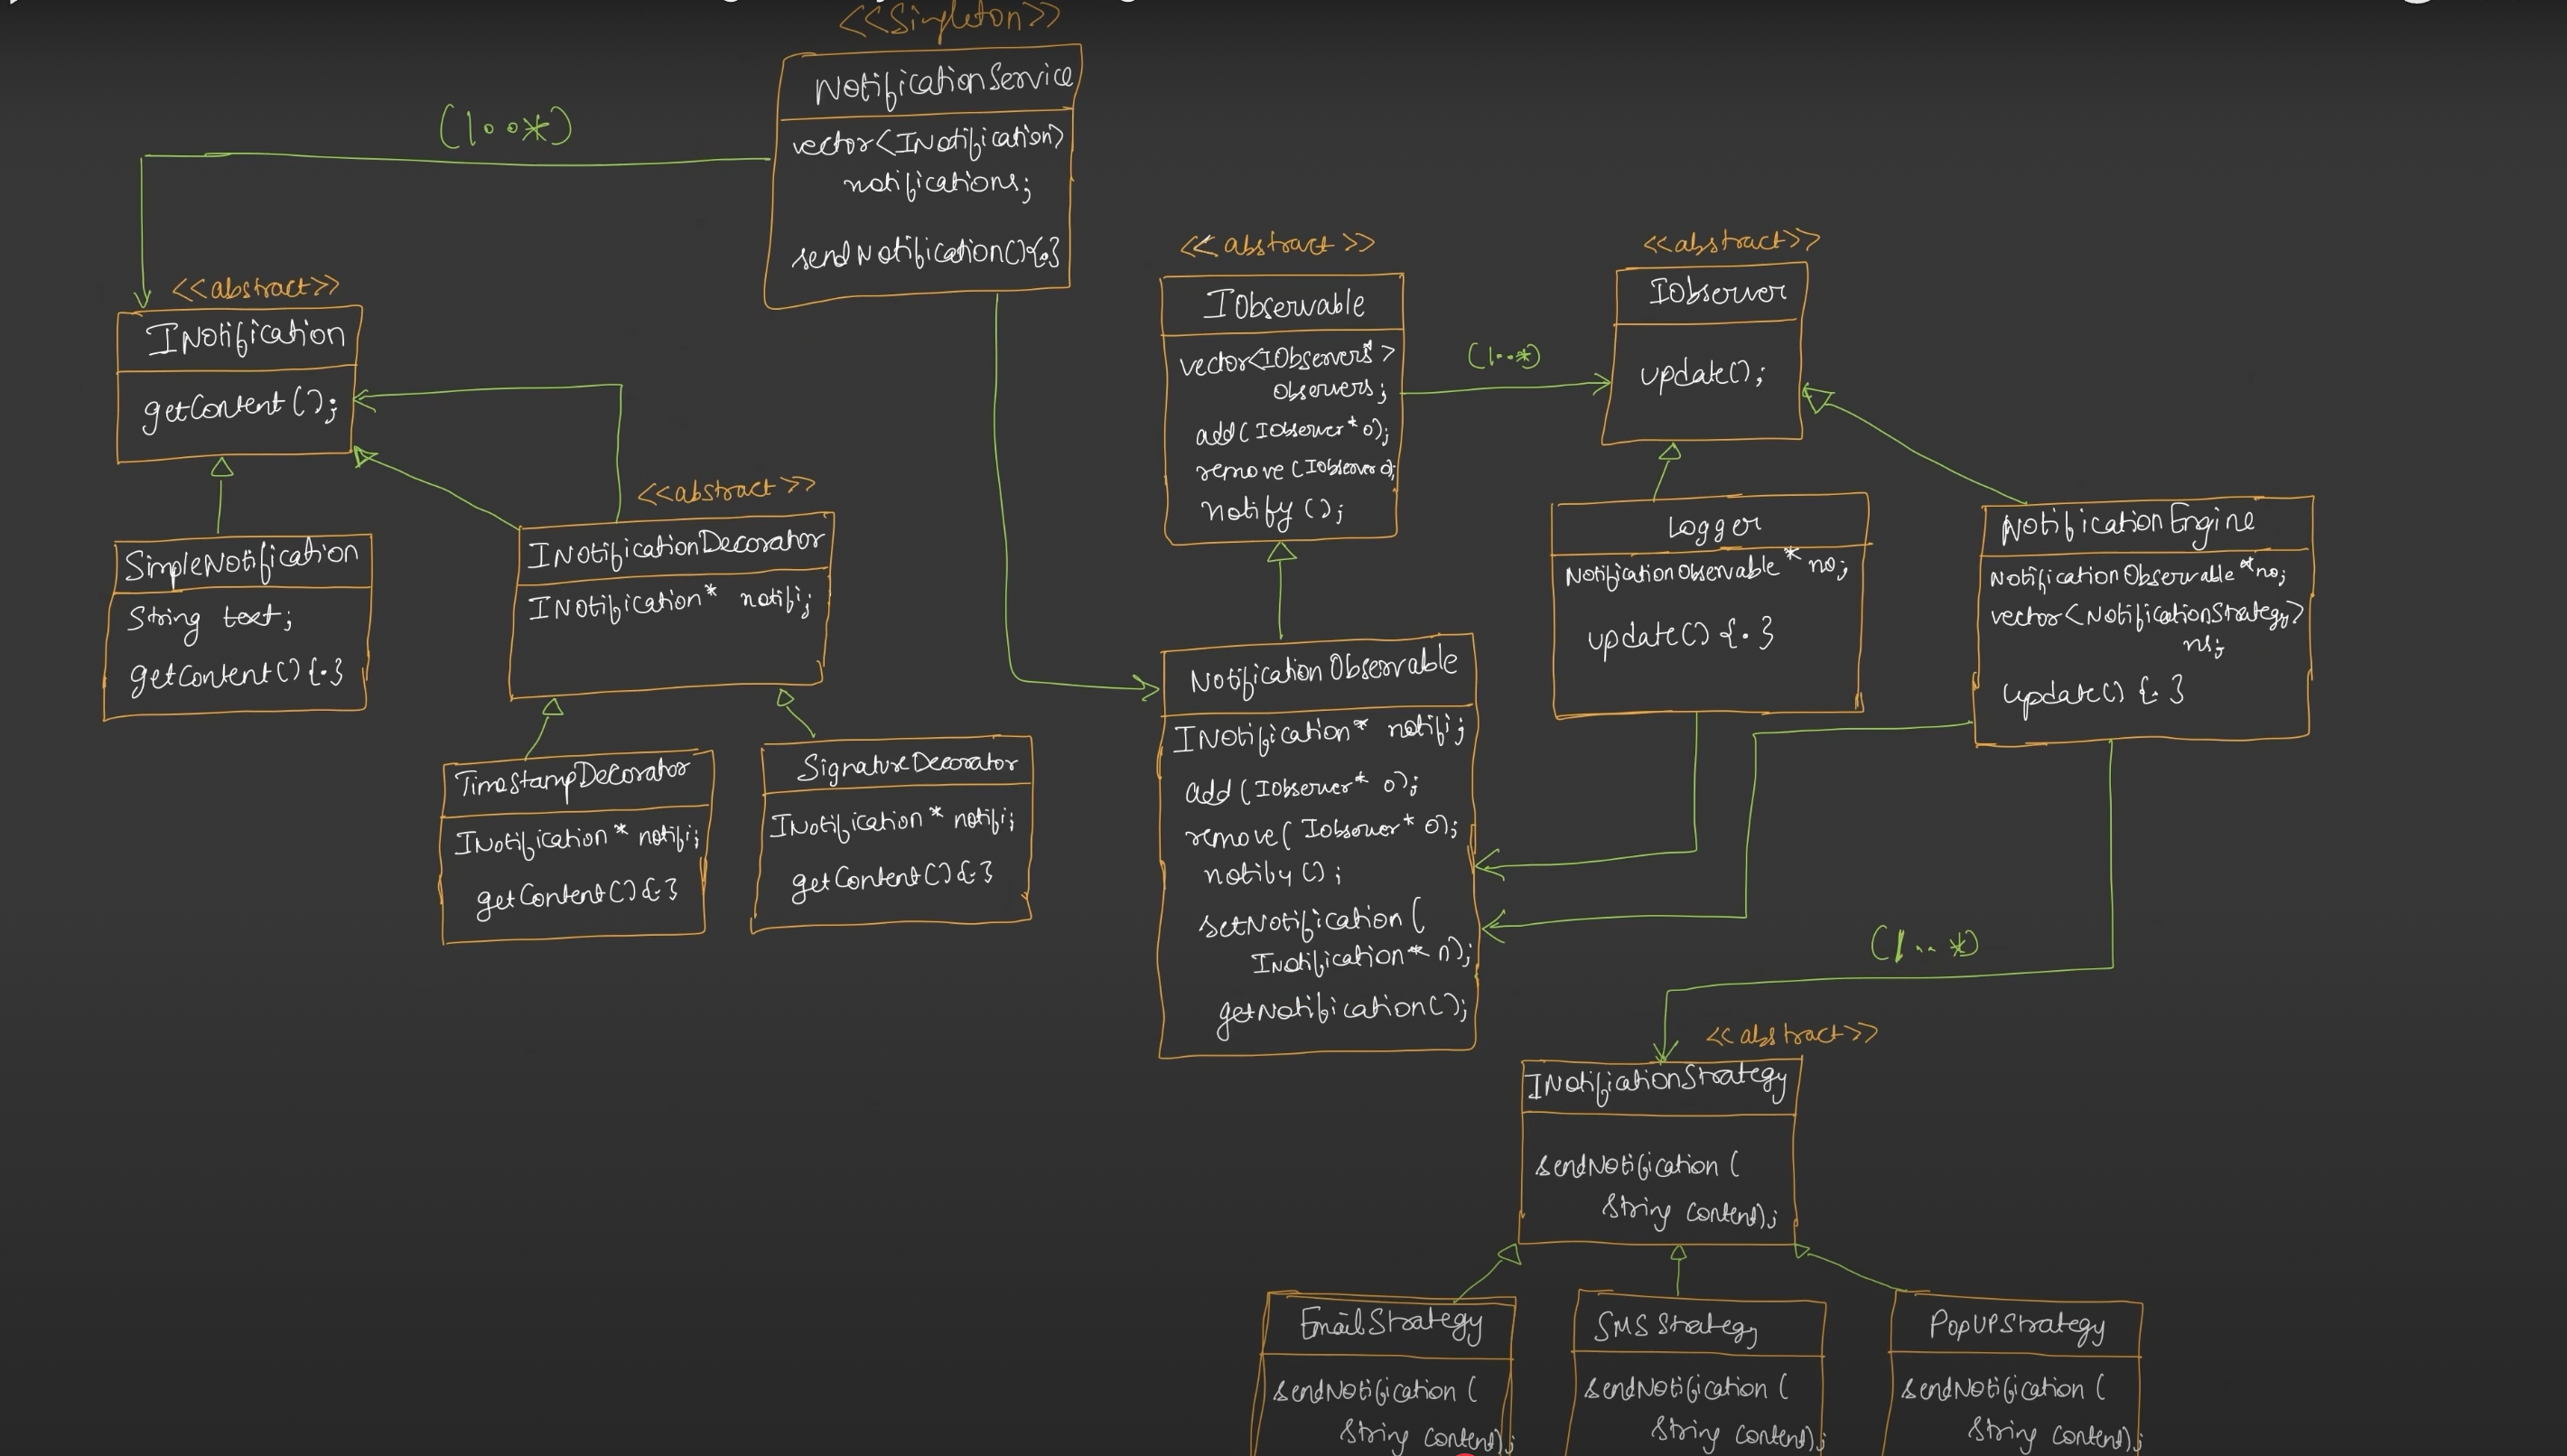 <<Singleton>>
NotificationService
vector<INotification>
notifications;
sendNotification(){.}
(1..*)
<<abstract>>
INotification
getContent();
SimpleNotification
String text;
getContent(){.}
<<abstract>>
INotificationDecorator
INotification* notifi;
TimeStampDecorator
INotification* notifi;
getContent(){.}
SignatureDecorator
INotification* notifi;
getContent(){.}
<<abstract>>
IObservable
vector<IObservers*>
observers;
add(IObserver* o);
remove(IObserver o);
notify();
(1..*)
<<abstract>>
IObserver
update();
Logger
NotificationObservable* no;
update(){.}
NotificationEngine
NotificationObservable* no;
vector<NotificationStrategy>
ns;
update(){.}
NotificationObservable
INotification* notifi;
add(IObserver* o);
remove(IObserver* o);
notify();
setNotification(
INotification* n);
getNotification();
(1..*)
<<abstract>>
INotificationStrategy
sendNotification(
String content);
EmailStrategy
sendNotification(
String content);
SMSStrategy
sendNotification(
String content);
PopUPStrategy
sendNotification(
String content);